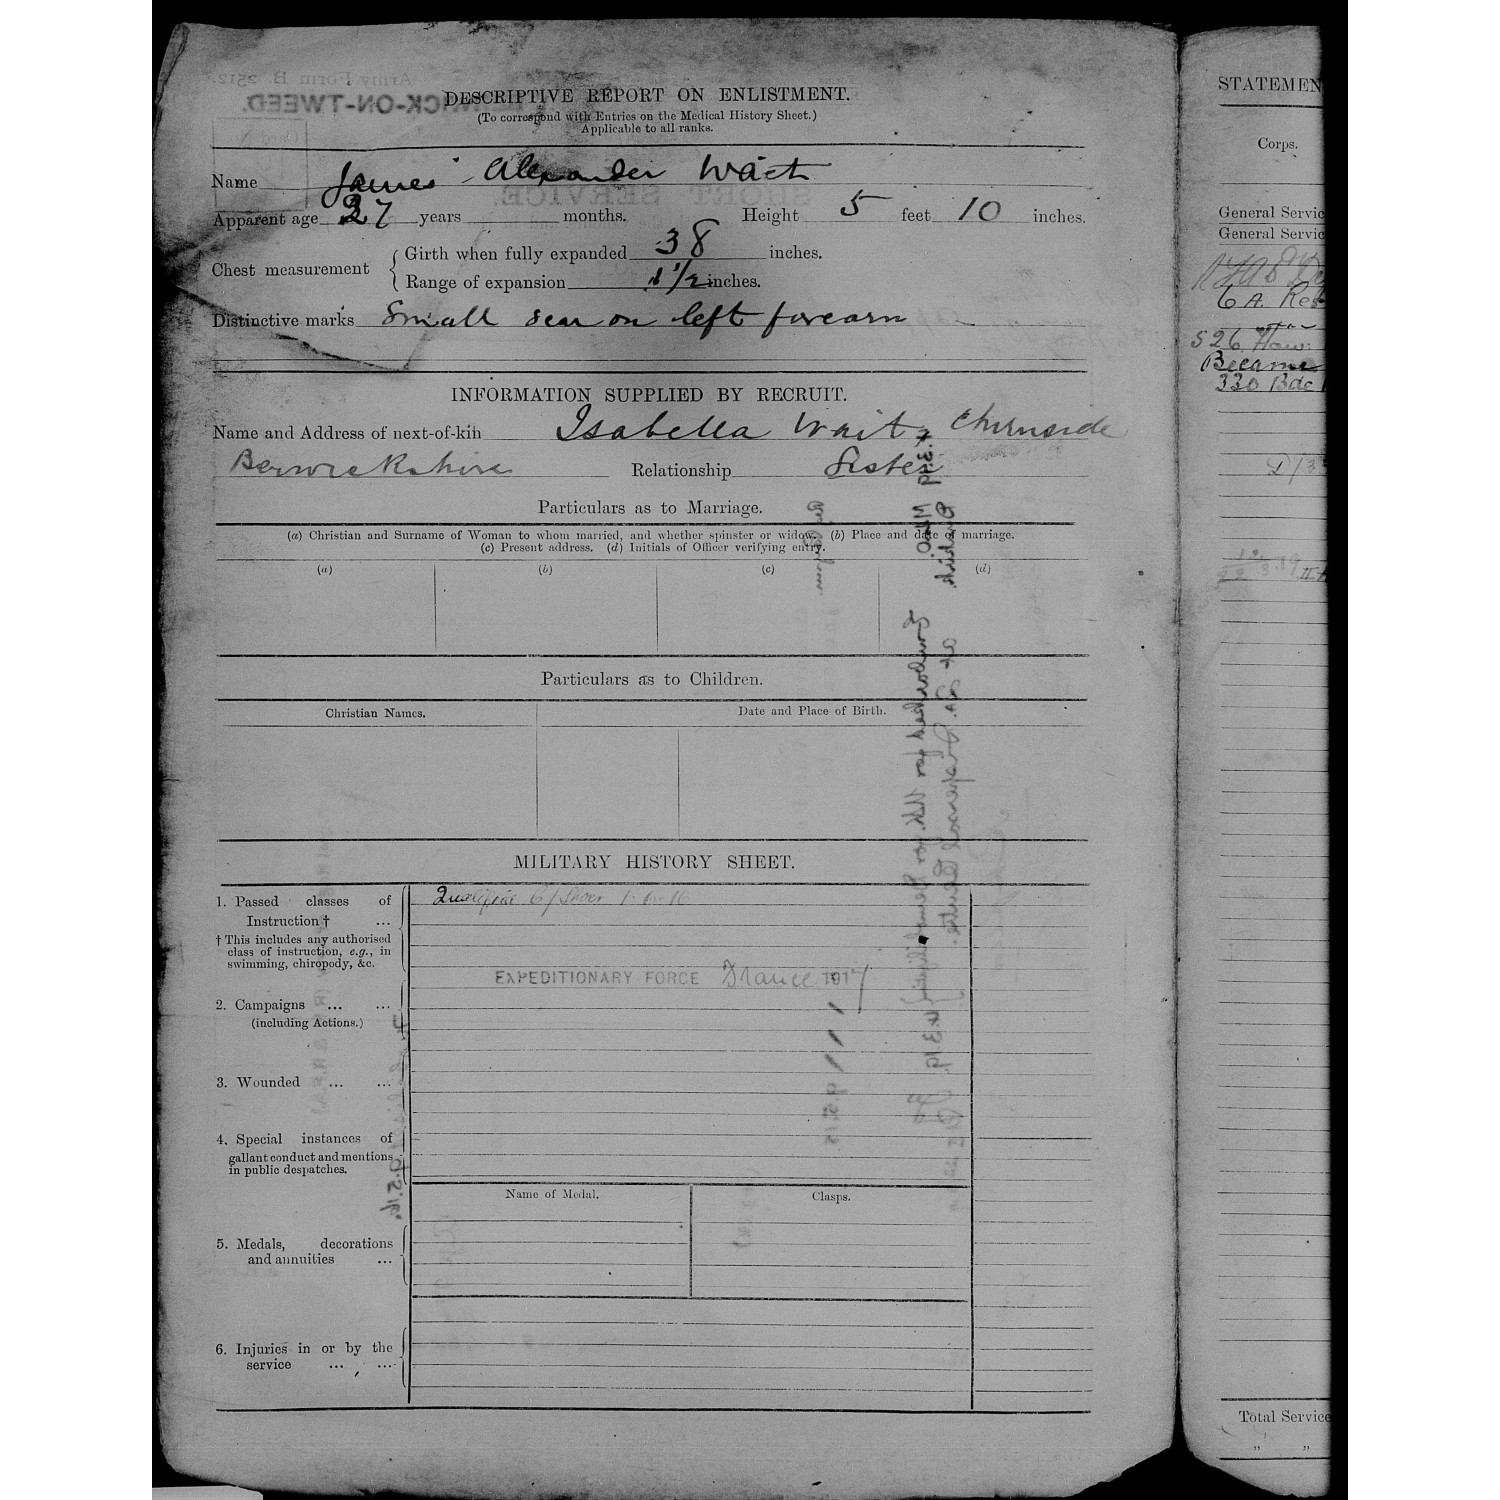 Army Form B. 2512.
BERWICK-ON-TWEED.
DESCRIPTIVE REPORT ON ENLISTMENT.
(To correspond with Entries on the Medical History Sheet.)
Applicable to all ranks.
SHORT SERVICE.
Name James Alexander Wait
Apparent age 27 years months. Height 5 feet 10 inches.
Chest measurement { Girth when fully expanded 38 inches.
Range of expansion 1 1/2 inches.
Distinctive marks Small scar on left forearm
INFORMATION SUPPLIED BY RECRUIT.
Name and Address of next-of-kin Isabella Wait, Chirnside
Berwickshire Relationship Sister
Particulars as to Marriage.
(a) Christian and Surname of Woman to whom married, and whether spinster or widow. (b) Place and date of marriage.
(c) Present address. (d) Initials of Officer verifying entry.
(a) (b) (c) (d)
Particulars as to Children.
Christian Names. Date and Place of Birth.
MILITARY HISTORY SHEET.
1. Passed classes of Instruction † ...
Qualified C/Shoer 1.6.16
† This includes any authorised
class of instruction, e.g., in
swimming, chiropody, &c.
EXPEDITIONARY FORCE France 1917
2. Campaigns ... ...
(including Actions.)
3. Wounded ... ...
4. Special instances of
gallant conduct and mentions
in public despatches.
Name of Medal. Clasps.
5. Medals, decorations
and annuities ...
6. Injuries in or by the
service ... ...
Embarked for U.K. for Demobilization 4.3.19
at Dispersal Centre
9.5.16
STATEMEN
Corps.
General Servic
General Servic
6 A. Res
526 How.
Became
330 Bde
D/3
Total Service
" "